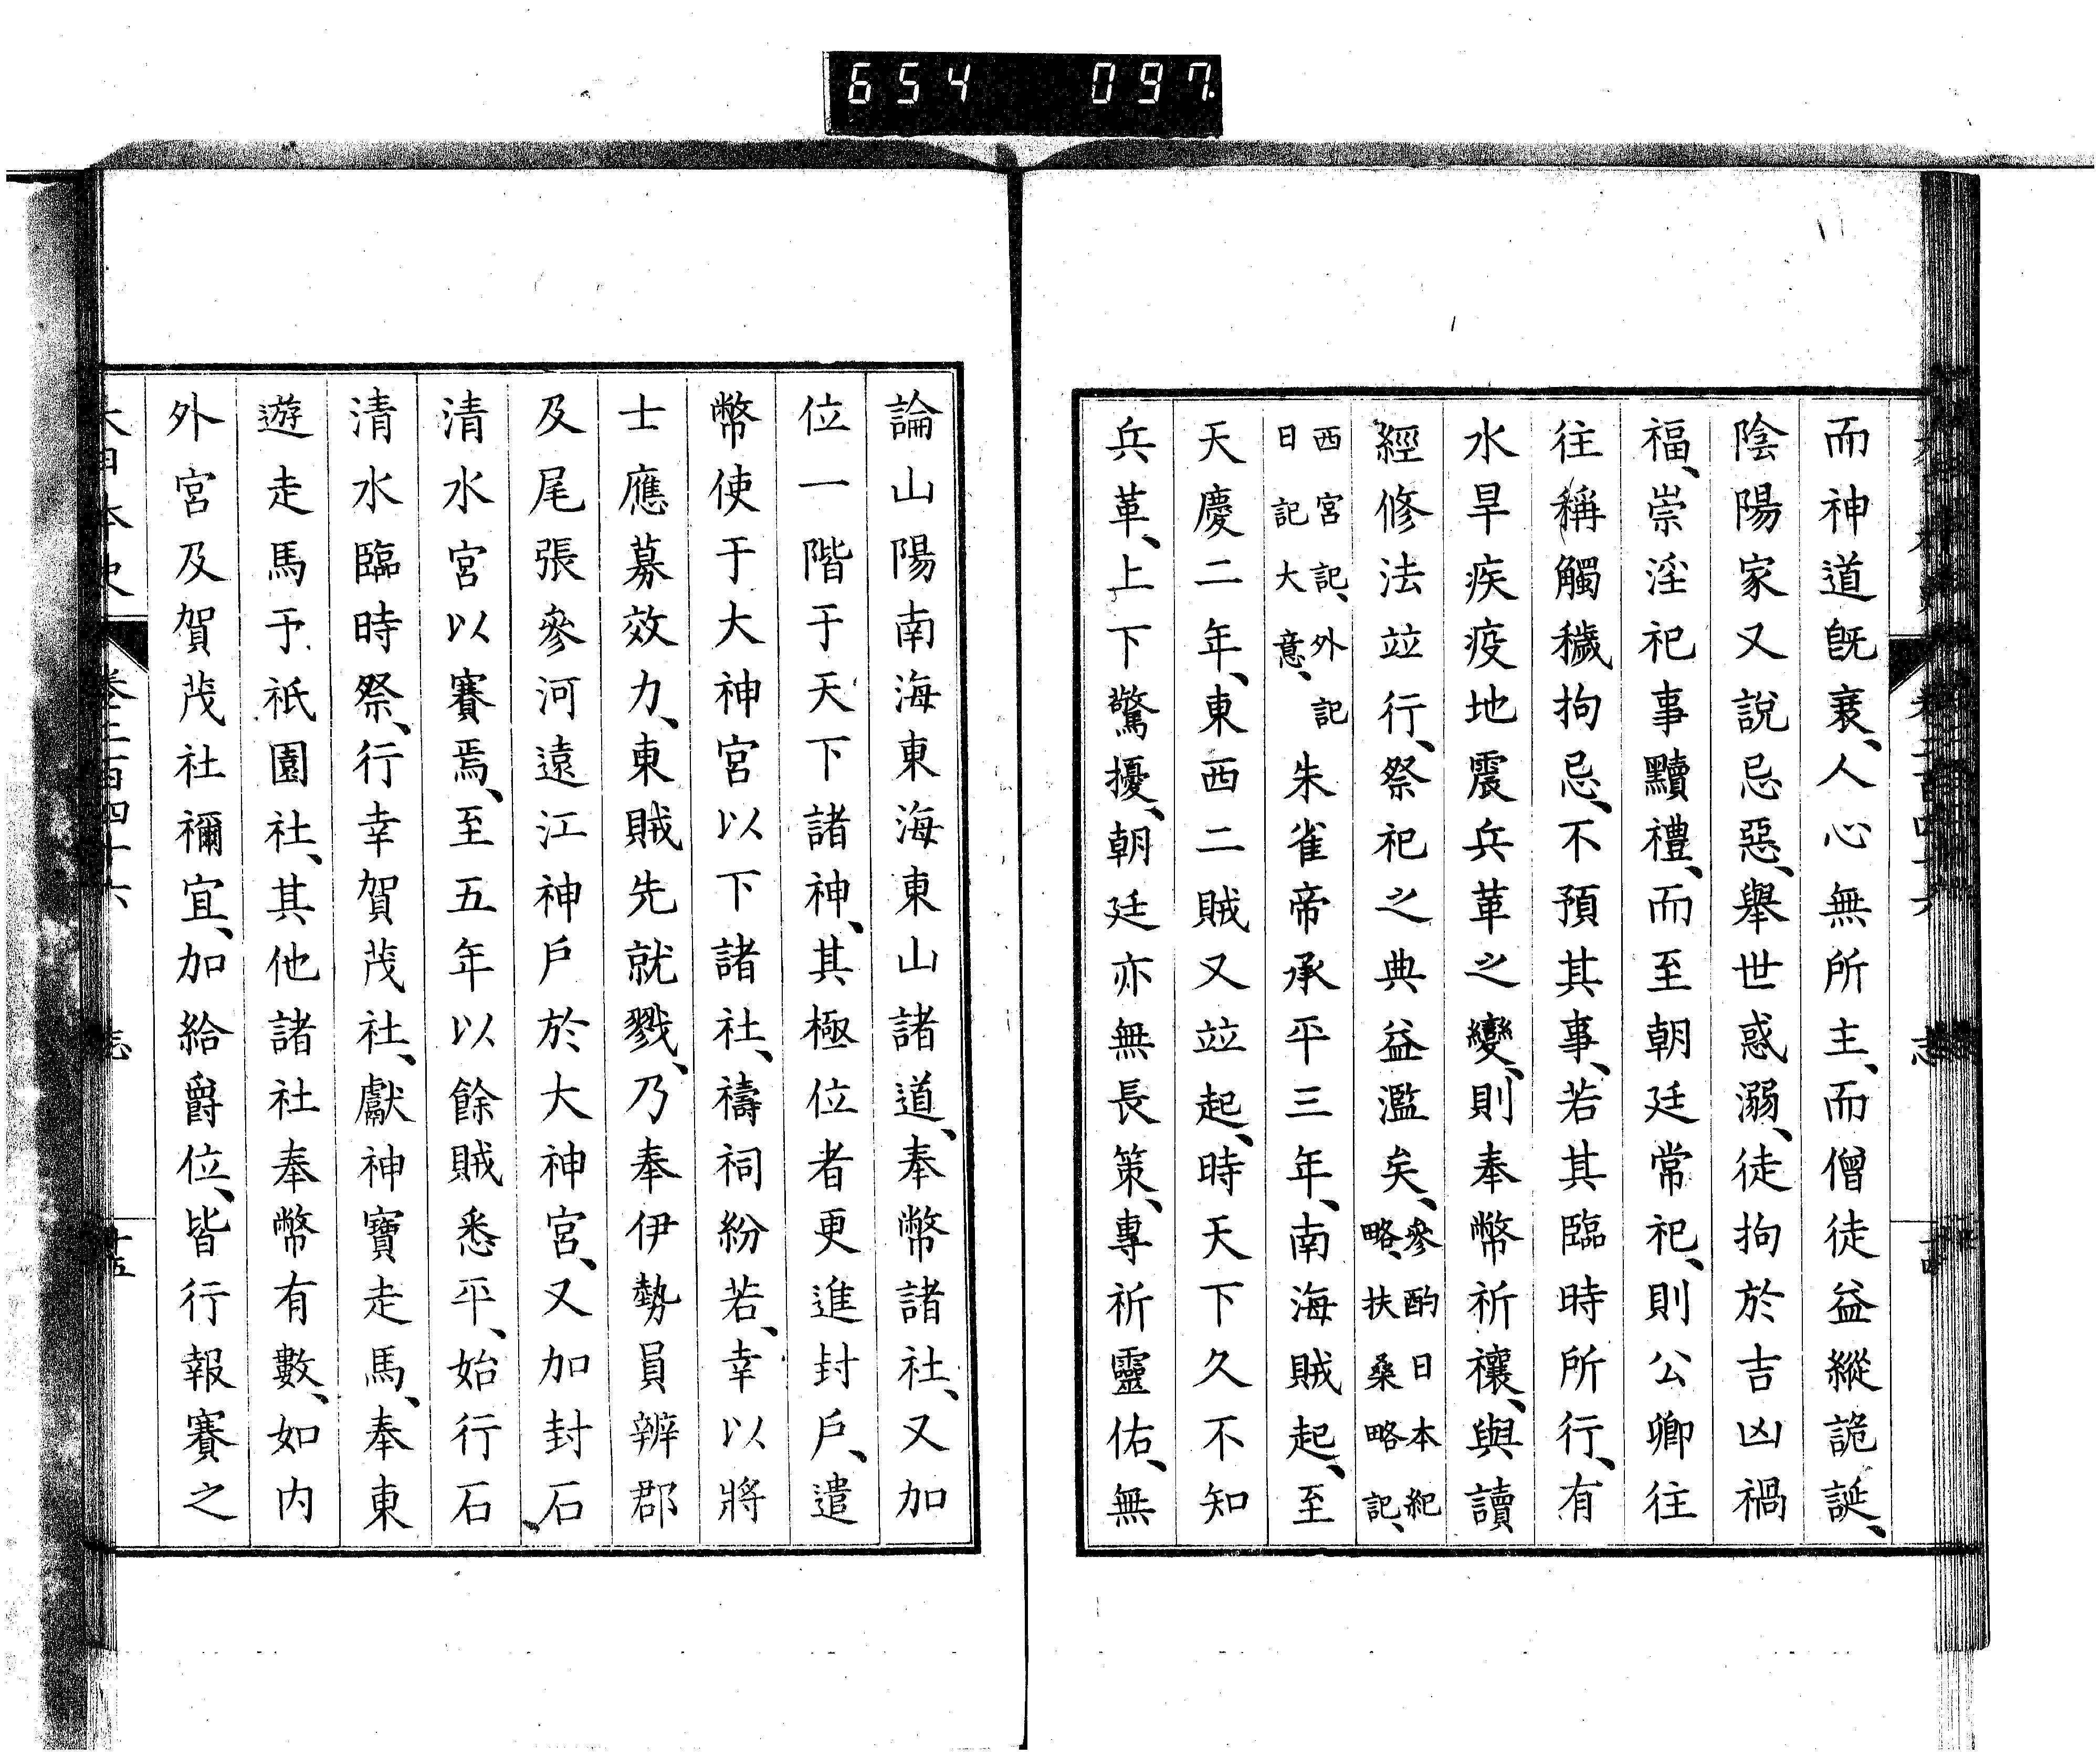 654 097
而神道既衰、人心無所主、而僧徒益縱詭誕、
陰陽家又說忌惡、舉世惑溺、徒拘於吉凶禍
福、崇淫祀事黷禮、而至朝廷常祀、則公卿往
往稱觸穢拘忌、不預其事、若其臨時所行、有
水旱疾疫地震兵革之變、則奉幣祈禳、與讀
經修法竝行、祭祀之典益濫矣、參酌日本紀略、扶桑略記、
西宮記、外記日記大意、朱雀帝承平三年、南海賊起、至
天慶二年、東西二賊又竝起、時天下久不知
兵革、上下驚擾、朝廷亦無長策、專祈靈佑、無
論山陽南海東海東山諸道、奉幣諸社、又加
位一階于天下諸神、其極位者更進封戶、遣
幣使于大神宮以下諸社、禱祠紛若、幸以將
士應募效力、東賊先就戮、乃奉伊勢員辨郡
及尾張參河遠江神戶於大神宮、又加封石、
清水宮以賽焉、至五年以餘賊悉平、始行石
清水臨時祭、行幸賀茂社、獻神寶走馬、奉東
遊走馬于祇園社、其他諸社奉幣有數、如内
外宮及賀茂社禰宜、加給爵位、皆行報賽之
大日本史 卷二百四十六 志 十五